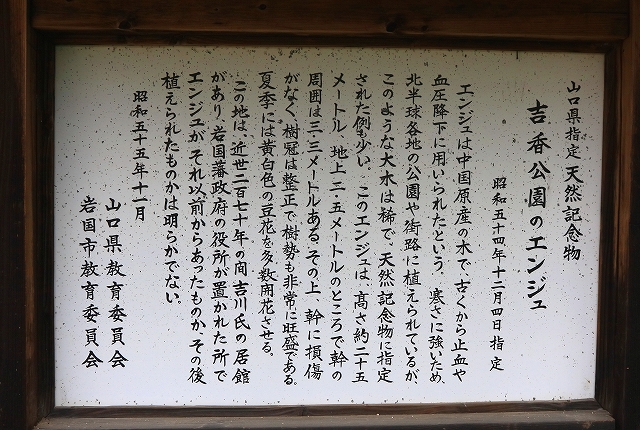 山口県指定 天然記念物
吉香公園のエンジュ
昭和五十四年十二月四日指定
エンジュは中国原産の木で、古くから止血や
血圧降下に用いられたという。寒さに強いため、
北半球各地の公園や街路に植えられているが、
このような大木は稀で、天然記念物に指定
された例も少い。このエンジュは、高さ約二十五
メートル、地上二・五メートルのところで幹の
周囲は三・三メートルある。その上、幹に損傷
がなく、樹冠は整正で樹勢も非常に旺盛である。
夏季には黄白色の豆花を多数開花させる。
この地は、近世二百七十年の間吉川氏の居館
があり、岩国藩政府の役所が置かれた所で
エンジュが、それ以前からあったものか、その後
植えられたものかは明らかでない。
昭和五十五年十一月
山口県教育委員会
岩国市教育委員会